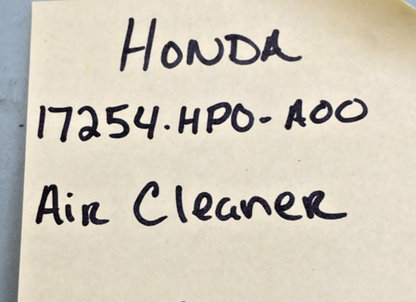 HONDA
17254.HPO-AOO
Air Cleaner